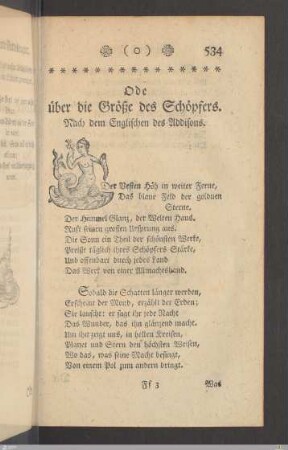 ( o ) 534
Ode
über die Größe des Schöpfers.
Nach dem Englischen des Addisons.
Der Vesten Höh in weiter Ferne,
Das blaue Feld der goldnen
Sterne,
Der Himmel Glanz, der Welten Haus,
Ruft seinen grossen Ursprung aus.
Die Sonn ein Theil der schönsten Werke,
Preißt täglich ihres Schöpfers Stärke,
Und offenbart durch jedes Land
Das Werk von einer Allmachtshand.
Sobald die Schatten länger werden,
Erscheint der Mond, erzählt der Erden;
Sie lauscht: er sagt ihr jede Nacht
Das Wunder, das ihn glänzend macht.
Um ihn zeigt uns, in hellen Kreisen,
Planet und Stern den höchsten Weisen,
Wo das, was seine Macht besingt,
Von einem Pol zum andern dringt.
Ff 3 Was